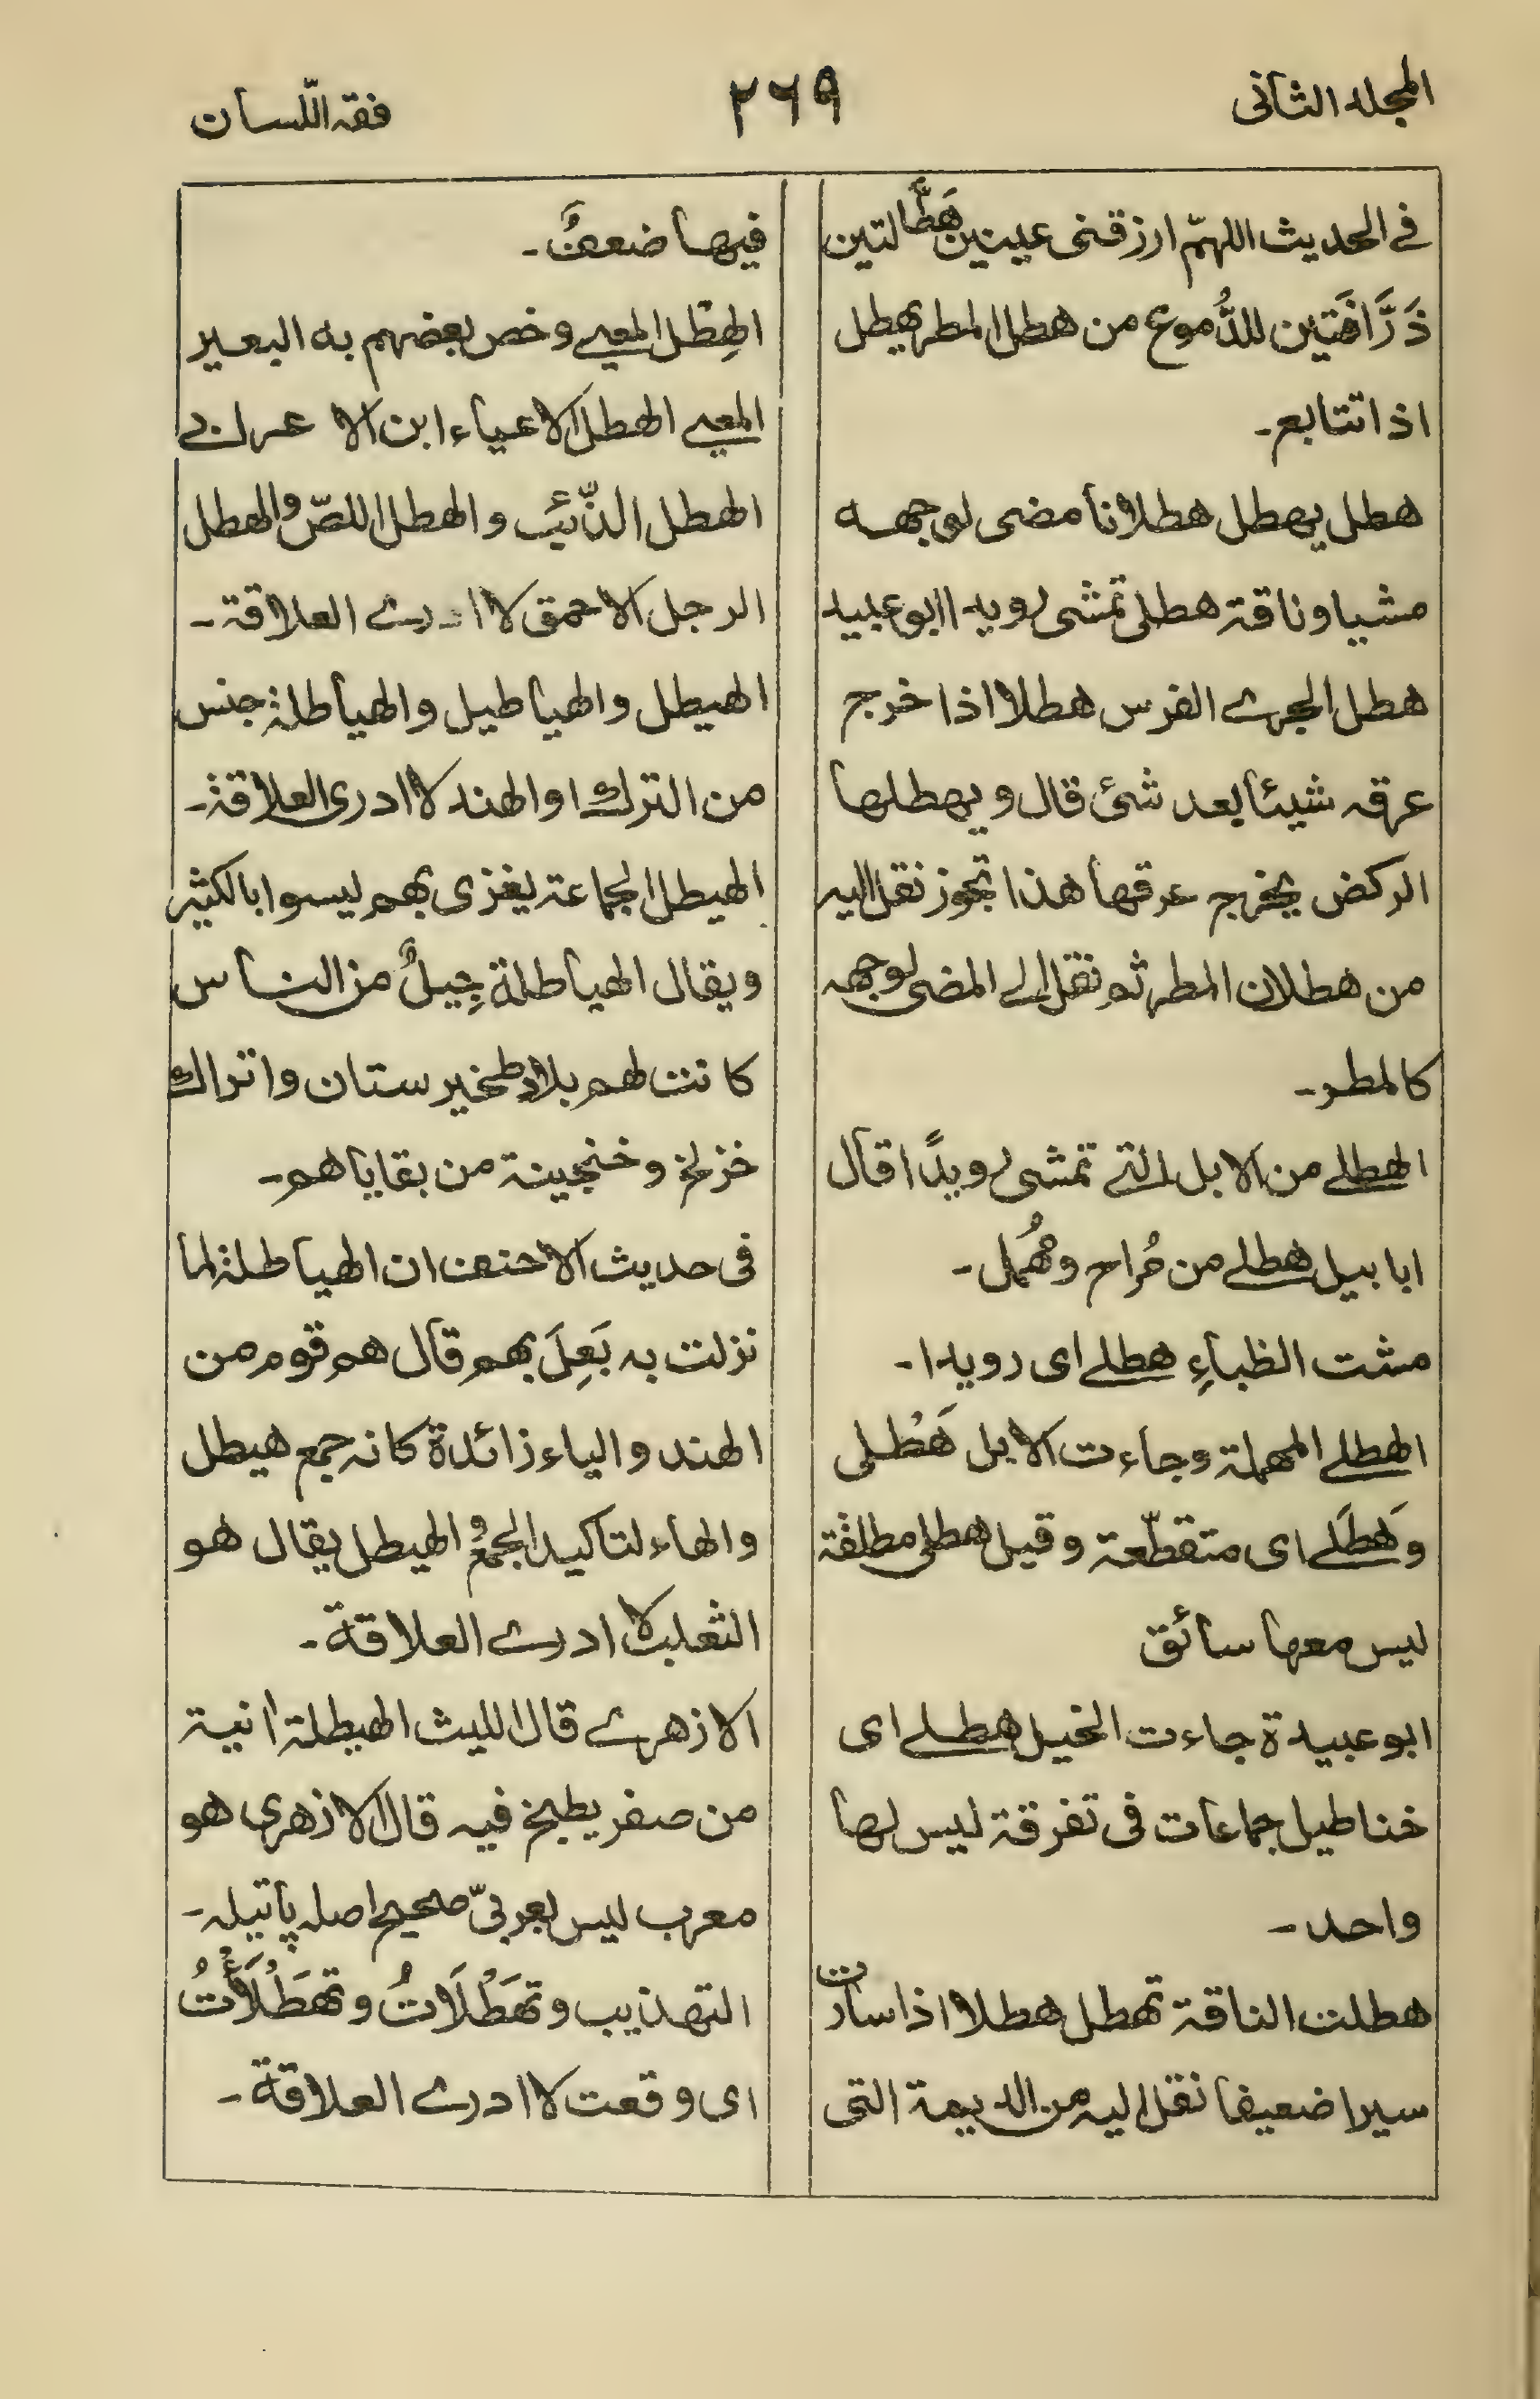 المجلد الثانی
۲۶۹
فقہ اللّسان
فے الحدیث اللهمّ ارزقنی عینین هَطَّالتین
ذَرَّافَتَین للدُّموع من هطل المطر یهطل
اذا تتابع۔
هطل یهطل هطلانا مضی لوجهہ
مشیا و ناقۃ هطلی تمشی رویدا ابو عبید
هطل الجرے الفرس هطلا اذا خرج
عرقہ شیئا بعد شئ قال و یهطلها
الرکض یخرج عرقها هذا تجوز نقل الیہ
من هطلان المطر ثم نقل الے المضی لوجهہ
کالمطر۔
الهطلے من الابل التے تمشی رویدًا قال
ابابیل هطلے من مُراح و مُهمل۔
مشت الظباءِ هطلے ای رویدا۔
الهطلے المهملۃ وجاءت الابل هَطْلی
وَهطَلے ای متقطّعۃ وقیل هطلی مطلقۃ
لیس معها سائق
ابو عبیدۃ جاءت الخیل هطلے ای
خناطیل جماعات فی تفرقۃ لیس لها
واحد۔
هطلت الناقۃ تهطل هطلا اذا سارت
سیرا ضعیفا نقل الیہ من الدیمۃ التی
فیها ضعفٌ۔
الهِطْل المعیے وخص بعضهم به البعیر
المعیے الهطل الاعیاء ابن الاعرابے
الهطل الذّئب والهطل اللصّ والهطل
الرجل الاحمق لا ادرے العلاقۃ۔
الهیطل والهیاطیل والهیاطلۃ جنس
من الترك او الهند لا ادری العلاقۃ۔
الهیطل الجماعۃ یغزی بهم لیسوا بالکثیر
ویقال الهیاطلۃ جِیلٌ من الناس
کانت لهم بلاد طخیرستان واتراك
خزلخ و خنجینۃ من بقایاهم۔
فی حدیث الاحنف ان الهیاطلۃ لما
نزلت بہ بَعِلَ بهم قال هم قوم من
الهند والیاء زائدۃ کانہ جمع هیطل
والهاء لتاکید الجمع والهیطل یقال هو
الثعلب لا ادرے العلاقۃ۔
الازهرے قال اللیث الهیطلۃ انیۃ
من صفر یطبخ فیہ قال الازهری هو
معرب لیس بعربیّ صحیح اصلہ پاتیلہ۔
التهذیب و تَهَطْلَاتُ و تَهَطْلَأْتُ
ای وقعت لا ادرے العلاقۃ۔